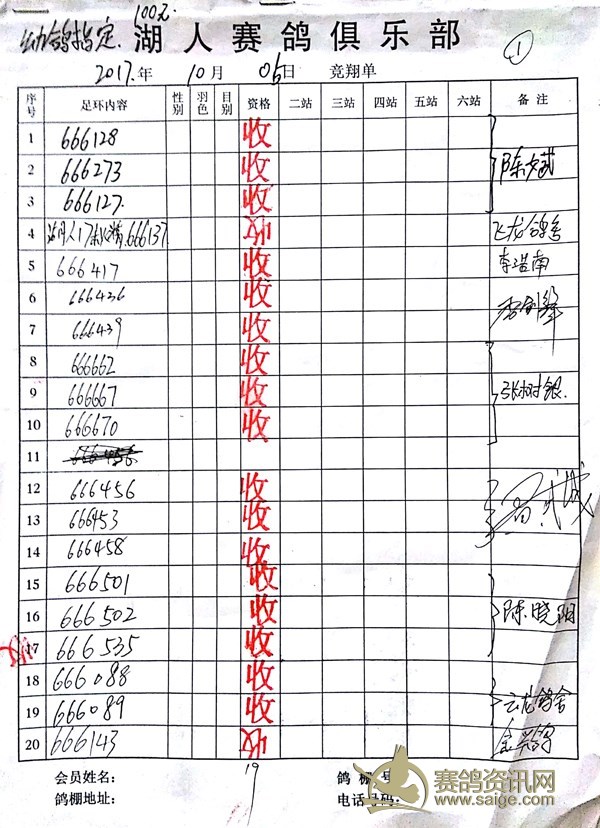 100元
幼鸽指定. 湖人赛鸽俱乐部 ①
2017年 10月 05日 竞翔单
序号 足环内容 性别 羽色 目别 资格 二站 三站 四站 五站 六站 备注
1 666128 收
2 666273 收 陈文斌
3 666127. 收
4 666137. 收 飞龙鸽舍
5 666417 收 李浩南
6 666436 收
7 666439 收
8 666662 收
9 666667 收 张树银.
10 666670 收
11
12 666456 收
13 666453 收
14 666458 收
15 666501 收
16 666502 收 陈晓阳
17 666535 收
18 666088 收
19 666089 收 云龙鸽舍
20 666143 收
19
会员姓名: 鸽棚号:
鸽棚地址: 电话号码:
赛鸽资讯网
www.saige.com